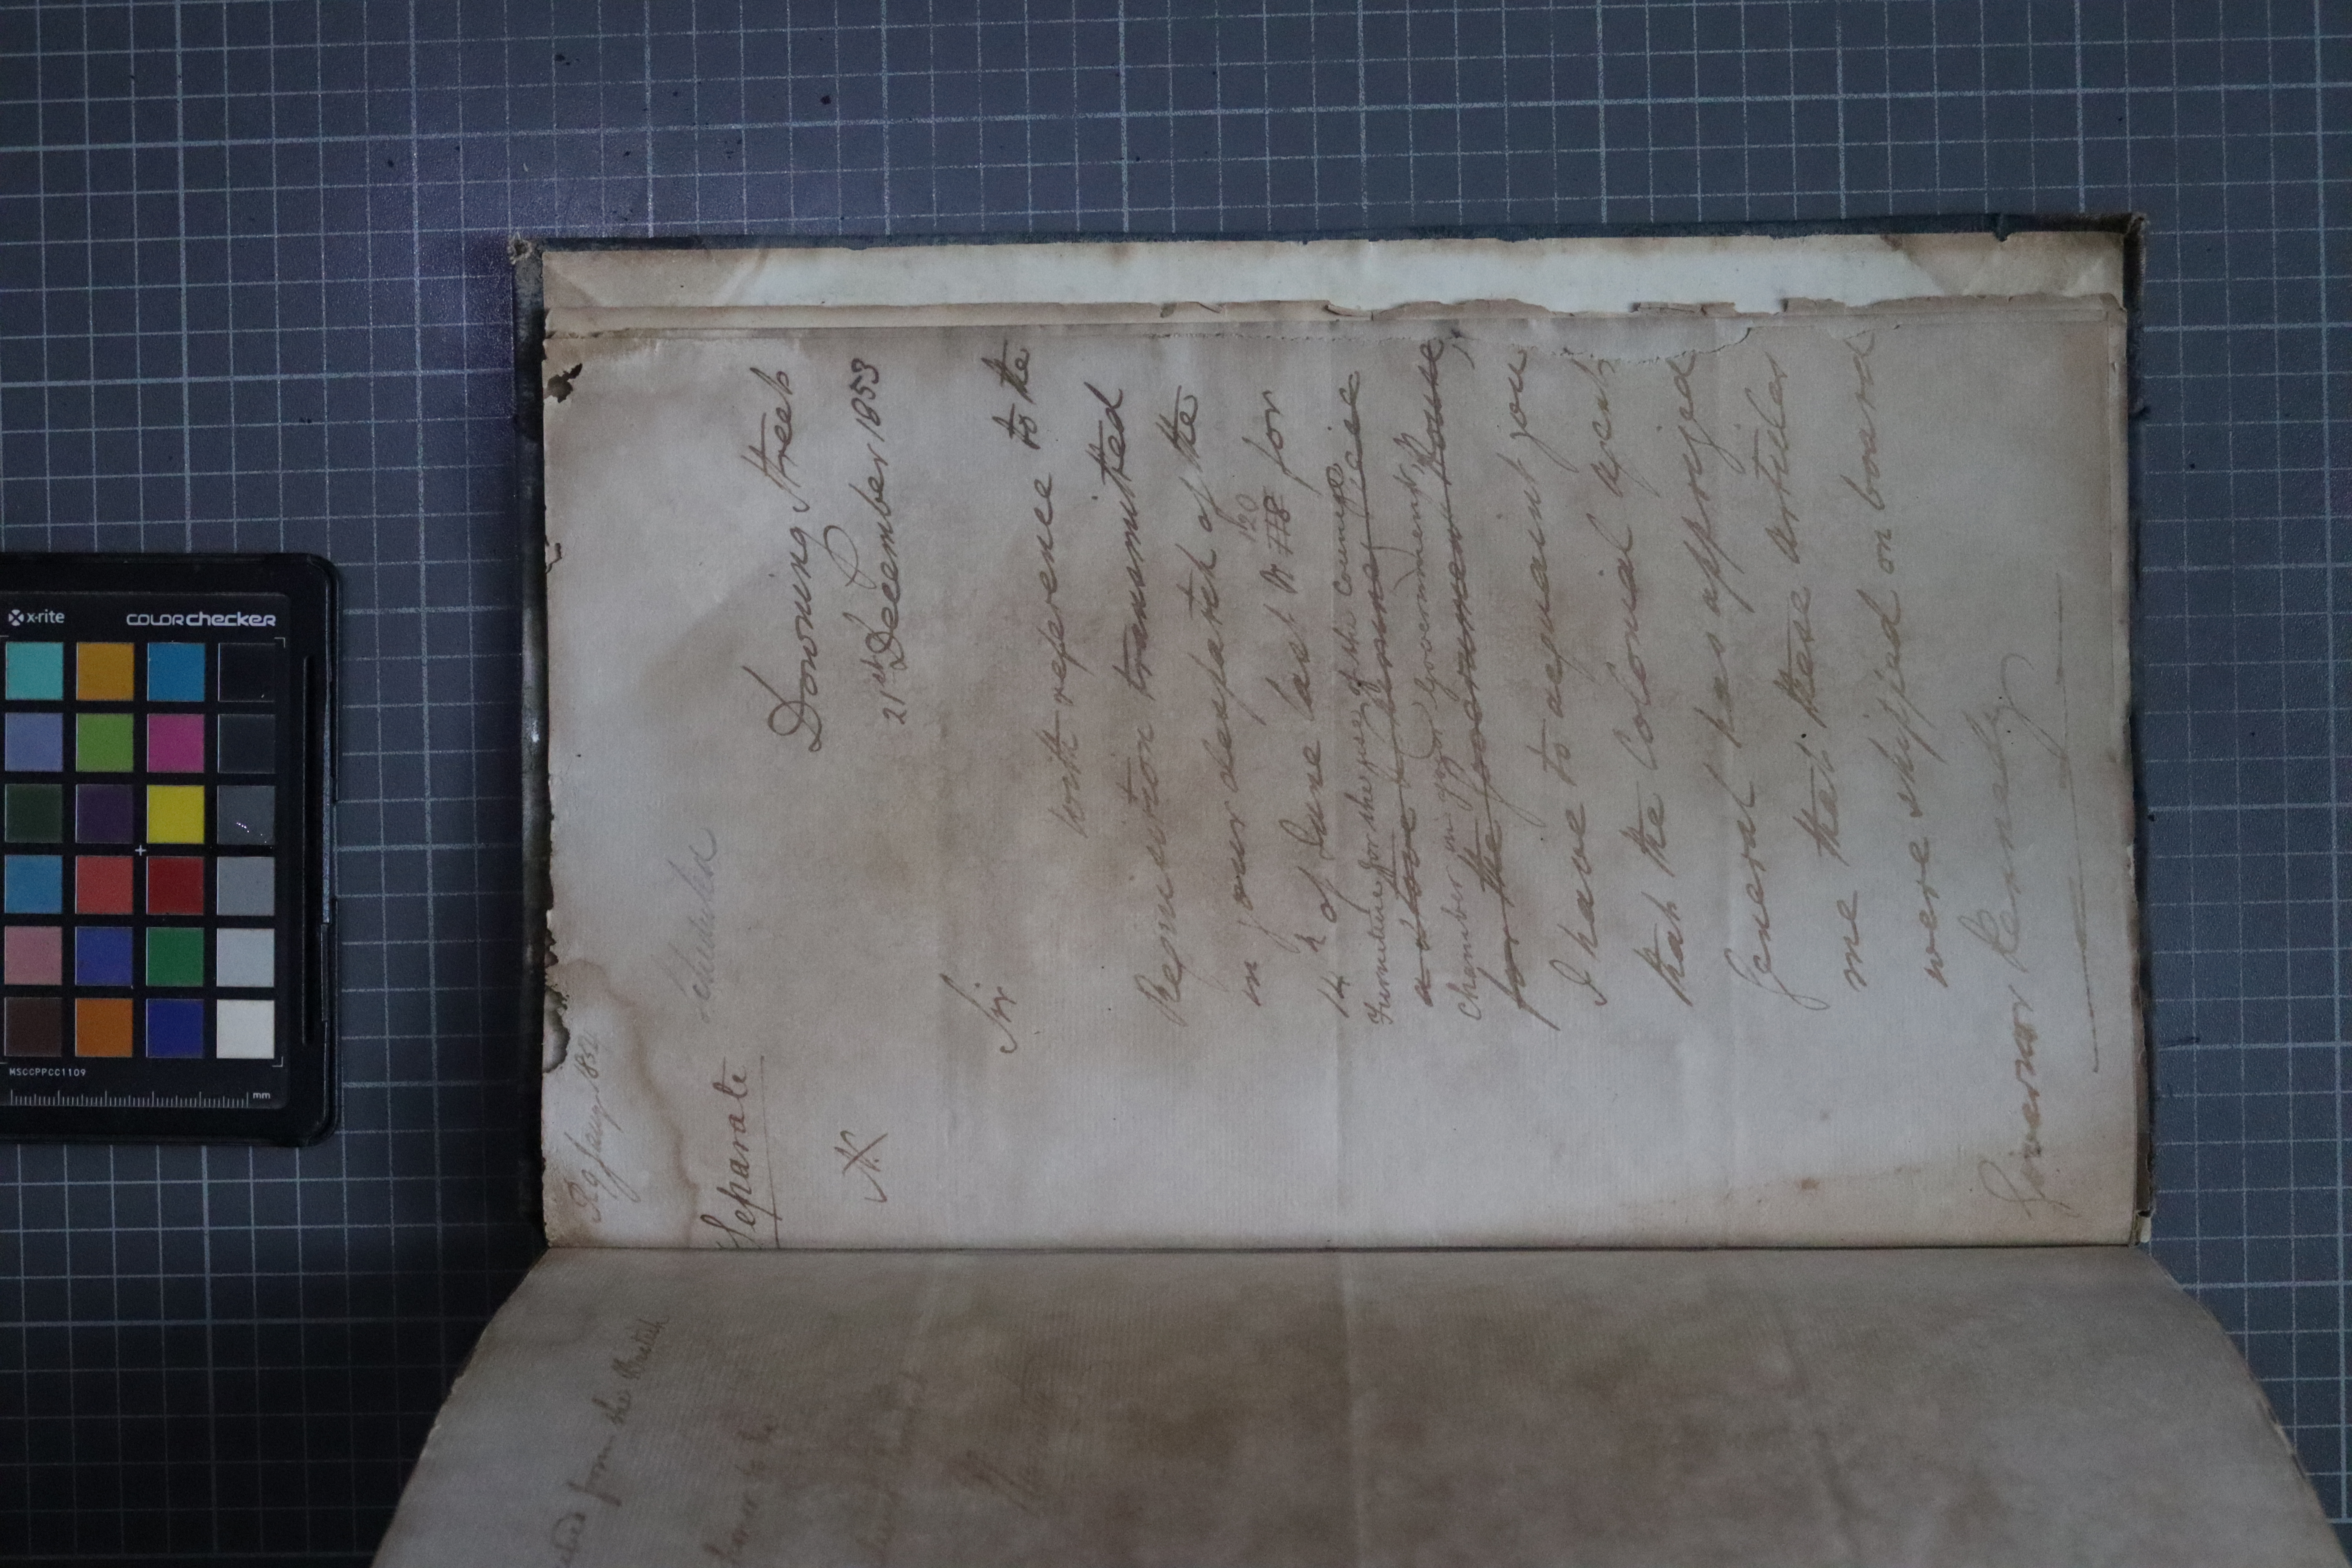 R 9 Jany 1854
Scheduled
Separate
Downing Street
21st December 1853
Sir
With reference to the
Requisition transmitted
in your despatch of the
120
14 of June last No 118 for
Furniture for the use of the Council
a stove
Chamber and Government House,
for the Government House
I have to acquaint you
that the Colonial Agent
General has apprized
me that these articles
were shipped on board
Governor Kennedy
from the British
x-rite
colorchecker
MSCCPPCC1109
mm